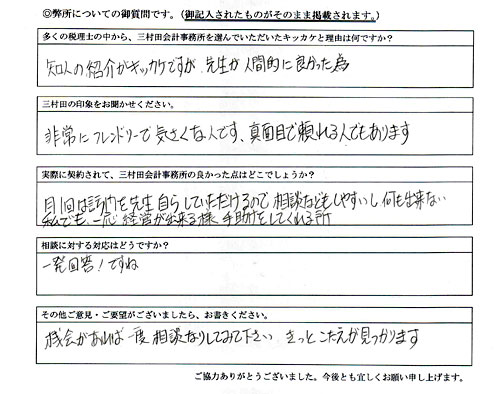 ◎弊所についての御質問です。(御記入されたものがそのまま掲載されます。)
多くの税理士の中から、三村田会計事務所を選んでいただいたキッカケと理由は何ですか?
知人の紹介がキッカケですが 先生が人間的に良かった為
三村田の印象をお聞かせください。
非常にフレンドリーで気さくな人です、真面目で頼れる人でもあります
実際に契約されて、三村田会計事務所の良かった点はどこでしょうか?
月1回は訪問を先生自らしていただけるので相談などもしやすいし何も出来ない
私でも、一応経営が出来る様手助けをしてくれる所
相談に対する対応はどうですか?
一発回答!ですね
その他ご意見・ご要望がございましたら、お書きください。
機会があれば一度相談なりしてみて下さい きっとこたえが見つかります
ご協力ありがとうございました。今後とも宜しくお願い申し上げます。